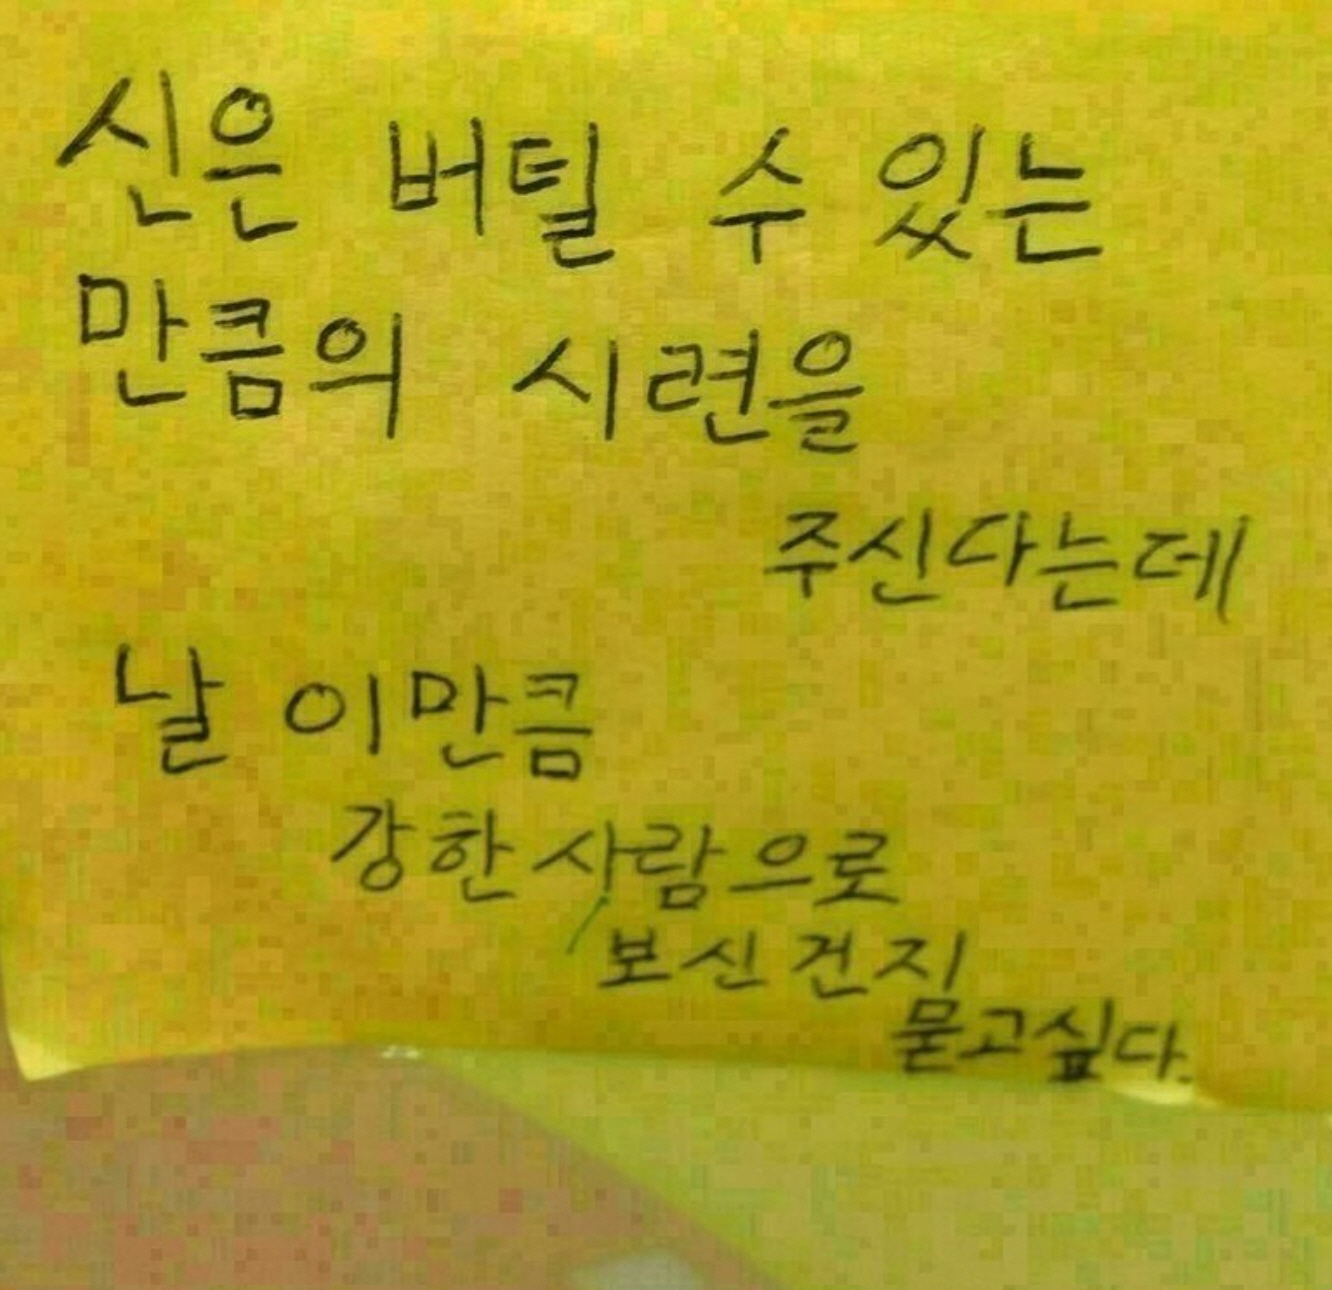 신은 버틸 수 있는
만큼의 시련을
주신다는데
날 이만큼
강한 사람으로
보신건지
묻고싶다.